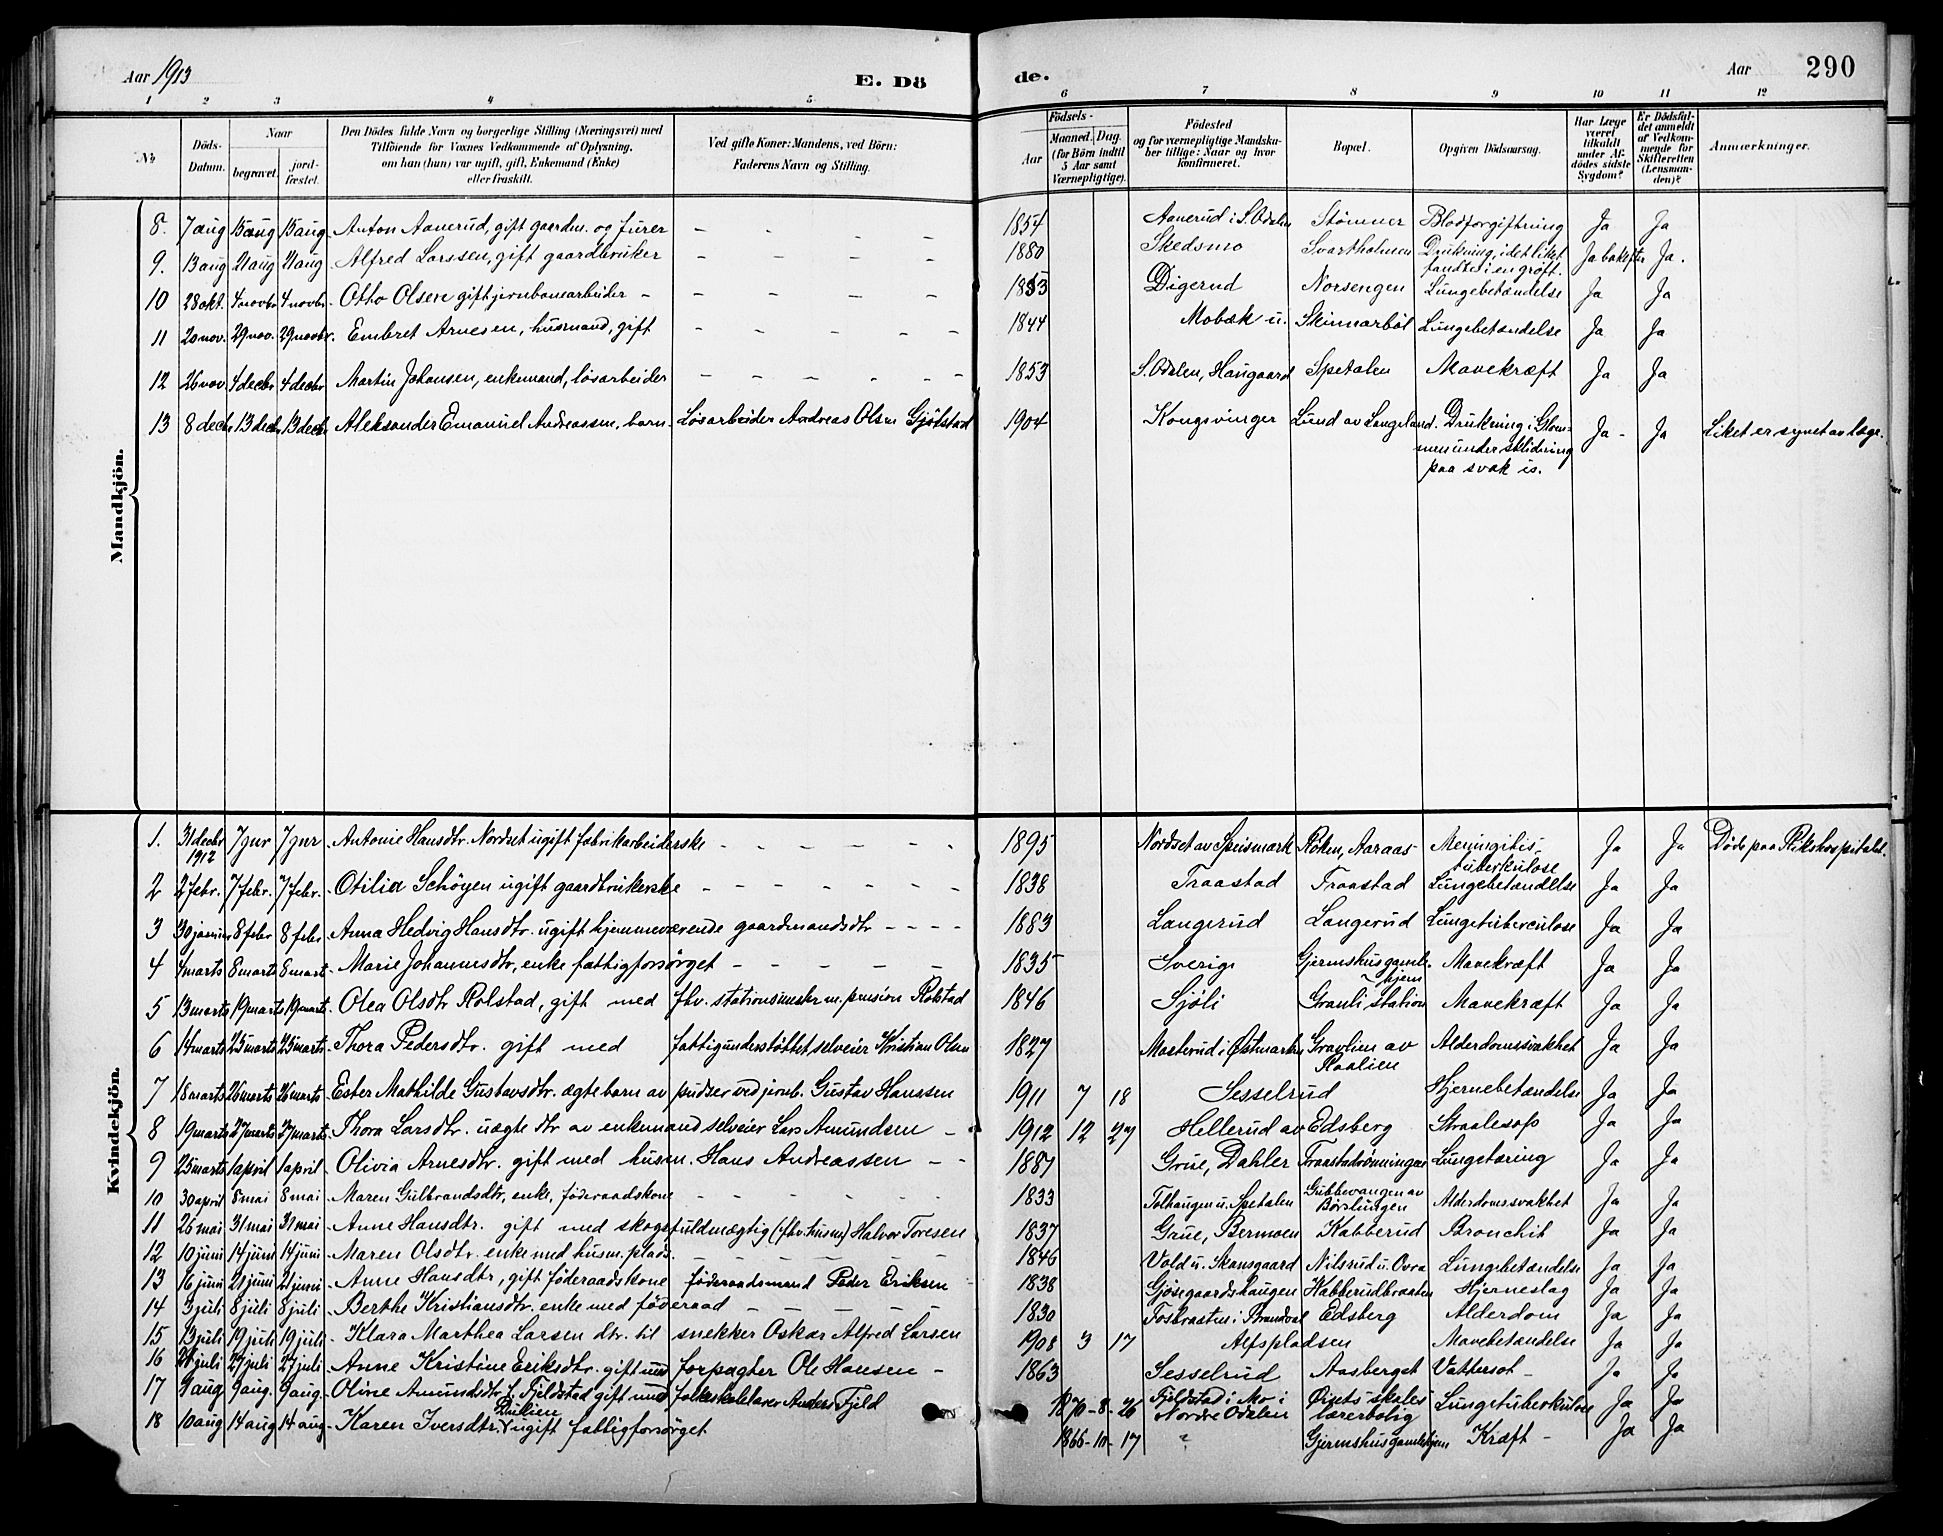 Aar 1913 E. Dö de. Aar 290
1 2 3 4 5 6 7 8 9 10 11 12
No
Döds-Datum.
Naar
begravet.
jord-fæstet.
Den Dödes fulde Navn og borgerlige Stilling (Næringsvei) med
Tilföiende for Voxnes Vedkommende af Oplysning,
om han (hun) var ugift, gift, Enkemand (Enke)
eller fraskilt.
Ved gifte Koner: Mandens, ved Börn:
Faderens Navn og Stilling.
Födsels-
Aar
Maaned. Dag.
(for Börn indtil
5 Aar samt
Værnepligtige).
Födested
og for værnepligtige Mandska-
ber tillige: Naar og hvor
konfirmeret.
Bopæl.
Opgiven Dödsaarsag.
Har Læge
været
tilkaldt
under Af-
dödes sidste
Sygdom?
Er Dödsfal-
det anmeldt
af Vedkom-
mende for
Skifteretten
(Lensman-
den)?
Anmærkninger.
Mandkjön.
8. 7 aug 15 aug 15 aug. Anton Aanerud, gift gaardm. og furer - - - - 1854 Aanerud i S. Odalen Stömner Blodforgiftning Ja Ja
9. 13 aug 21 aug 21 aug. Alfred Larssen, gift gaardbruker - - - - 1880 Skedsmo Svartholmen Drukning, idet liket Ja bakefter Ja.
fandtes i en gröft.
10 28 okt. 4 novbr 4 novbr. Otto Olsen gift jernbanearbeider - - - - - 1853 Digerud Norsengen Lungebetændelse Ja Ja
11 20 nov. 29 nov. 29 novbr. Embret Arnesen, husmand, gift - - - - - 1844 Mobæk u. Skinnarböl Lungebetændelse Ja Ja
12 26 nov 4 decbr 4 decbr Martin Johansen, enkemand, lösarbeider - - - - - - 1853 S. Odalen, Haugaard Spetalen Mavekræft Ja Ja
13 8 decbr 13 decbr 13 decbr Aleksander Emanuel Andreassen, barn Lösarbeider Andreas Olsen Gjölstad 1904 Kongsvinger Lund av Langeland. Drukning i Glom- Ja - Ja Liket er synet av læge.
men under sklidning
paa svak is.
Kvindekjön.
1. 31 decbr 1912 7 jnr 7 jnr. Antonie Hansdtr. Nordset ugift fabrikarbeiderske - - - - - 1895 Nordset av Speismark Roken, Aaraas Meningitis tuberkulose Ja Ja Döde paa Rikshospitalet.
2 2 febr. 7 febr. 7 febr. Otilia Schöyen ugift gaardbrukerske - - - - - - - 1838 Traastad Traastad Lungebetændelse Ja Ja
3 30 januar 8 febr 8 febr. Anna Hedvig Hansdtr. ugift hjemmeværende gaardmandsdtr - - - - 1883 Langerud Langerud Lungetuberculose Ja Ja
4 4 marts 8 marts 8 mart. Marie Johannesdtr, enke fattigforsörget - - - - - 1835 Sverige Gjermshus gamle- Mavekræft Ja Ja
hjem
5 13 marts 19 marts 19 marts. Olea Olsdtr Rolstad, gift med fhv. stationsmester m. pension Rolstad 1846 Sjöli Granli station Mavekræft Ja Ja
6 14 marts 25 marts 25 marts. Thora Pedersdtr. gift med fattigunderstöttet selveier Kristian Olsen 1827 Masterud i Östmarken Gravlien av Alderdomssvakhet Ja Ja
7 18 marts 26 marts 26 marts. Ester Mathilde Gustavsdtr. ægte barn av pudser ved jernb. Gustav Hanssen 1911 7 18 Sesselrud Hjernebetændelse Ja Ja
8 19 marts 27 marts 27 marts. Thora Larsdtr. uægte dtr av enkemand selveier Lars Amundsen - - 1912 12 27 Hellerud av Edsberg Straalesop Ja Ja
9 25 marts 1 april 1 april. Olivia Arnesdtr. gift med husm. Hans Andreassen - - 1887 Grue, Dahler Traastadrönningen Lungetæring Ja Ja
10 30 april 8 mai 8 mai. Maren Gulbrandsdtr, enke, föderaadskone - - - - - - 1833 Tolhaugen u. Spetalen Gubbevangen av Börslungen Alderdomssvakhet Ja Ja
11 26 mai 31 mai 31 mai. Anne Hansdtr. gift med skogsfuldmægtig (fhv. husm) Halvor Toresen 1837 Grue, Bermoen Kabberud Bronchit Ja Ja
12 10 juni 14 juni 14 juni. Maren Olsdtr. enke med husm. plads. - - - - - 1846 Vold u. Skansgaard Nilsrud u. Ovra Lungebetændelse Ja Ja
13 16 juni 21 juni 21 juni. Anne Hansdtr, gift föderaadskone föderaadsmand Peder Eriksen - 1838 Gjösegaardshaugen Kabberudbraaten Hjerneslag Ja Ja
14 3 juli 8 juli 8 juli. Berthe Kristiansdtr. enke med föderaad - - - - - 1830 i Brandval Edsberg Alderdom Ja Ja
15 13 juli 19 juli 19 juli. Klara Marthea Larsen dtr. til snekker Oskar Alfred Larsen 1908 3 17 Alfspladsen Mavebetændelse Ja Ja
16 21 juli 27 juli 27 juli. Anne Kristine Eriksdtr. gift med forpagter Ole Hansen - 1863 Sesselrud Aasberget Vattersot - Ja Ja
17 4 aug 9 aug. 9 aug. Oline Amundsdtr f. Fjeldstad gift med folkeskolelærer Anders Fjeld 1870 - 8 - 26 Fjeldstad i Mo i Nordre Odalen Öiets skoles lærerbolig Lungetuberkulose Ja Ja
18 10 aug 14 aug 14 aug. Karen Iversdtr. ugift fattigforsörget 1866 - 10 - 17 ? Gjermshus gamlehjem Kræft - Ja Ja